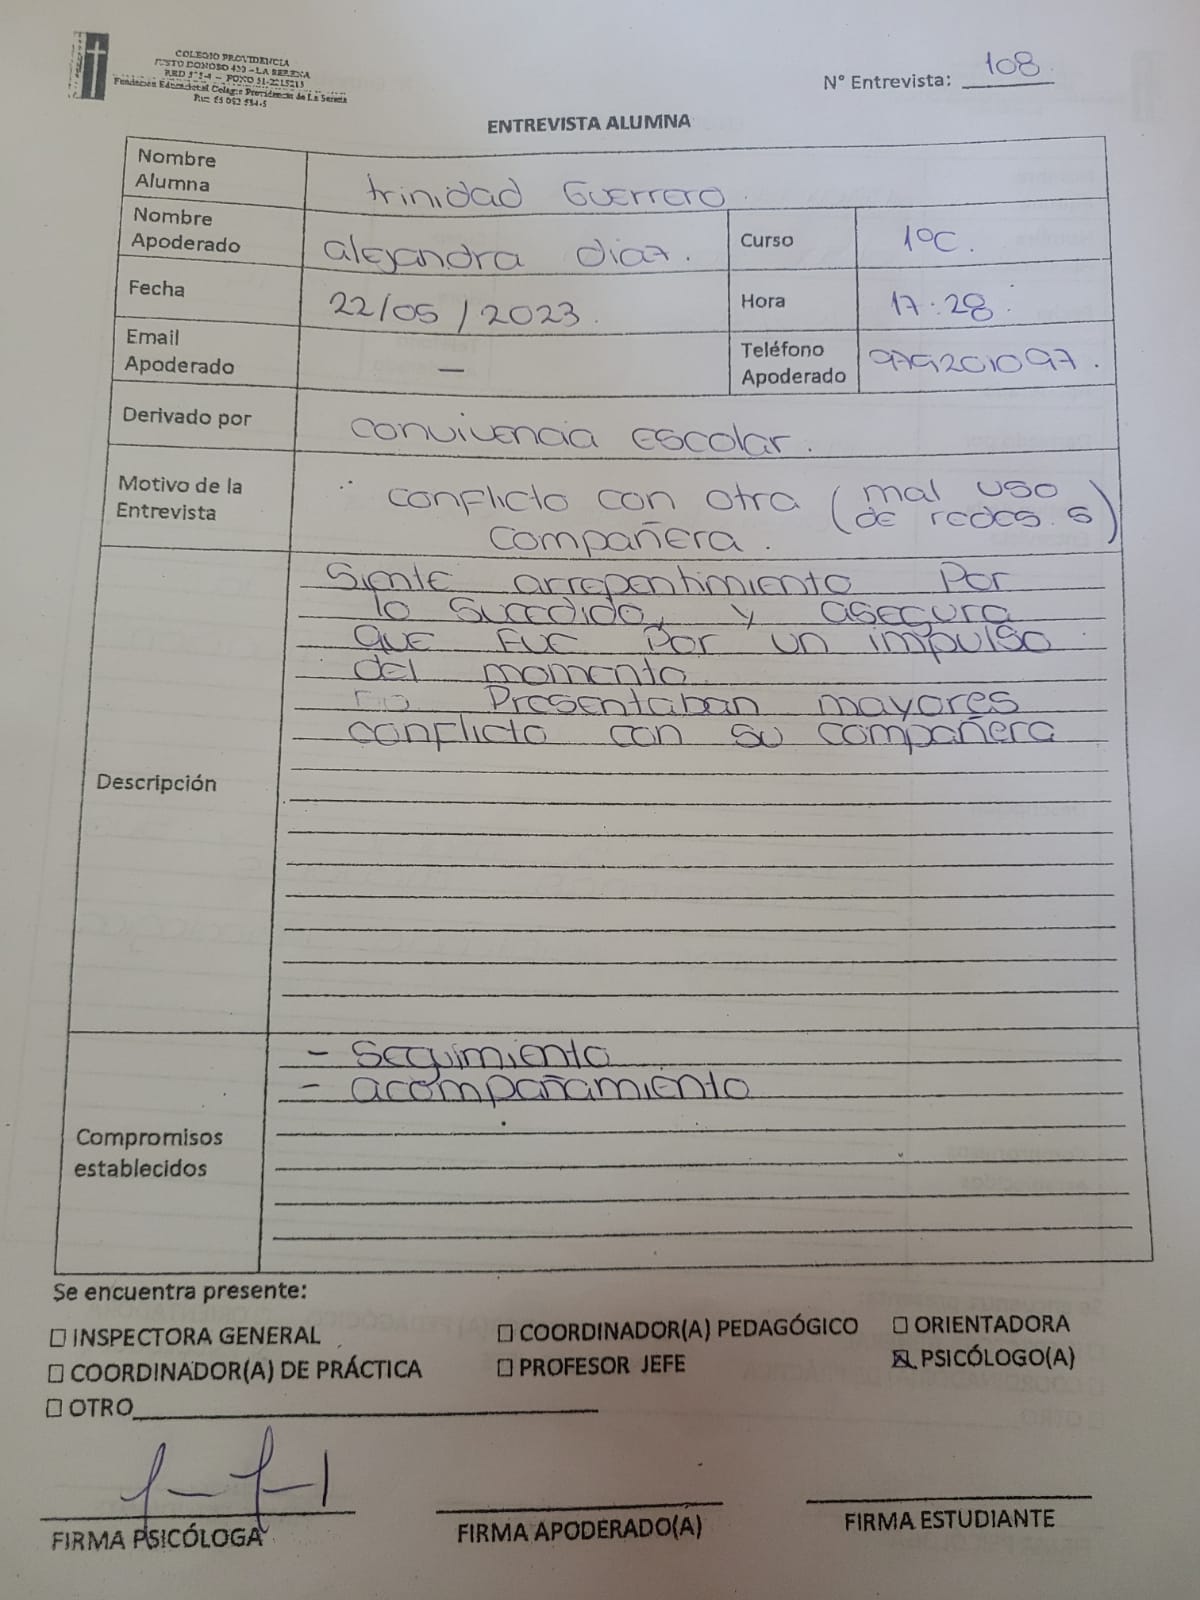 COLEGIO PROVIDENCIA
JUSTO DONOSO 420 - LA SERENA
Fundación Educacional Colegio Providencia de La Serena
N° Entrevista: 108
ENTREVISTA ALUMNA
Nombre Alumna trinidad Guerrero.
Nombre Apoderado alejandra diaz. Curso 1°C.
Fecha 22/05/2023. Hora 17:28.
Email Apoderado — Teléfono Apoderado 979201097.
Derivado por convivencia escolar.
Motivo de la Entrevista conflicto con otra (mal uso
de redes. s)
compañera.
Descripción
Siente arrepentimiento por
lo sucedido, y asegura
que fue por un impulso
del momento.
no presentaban mayores
conflicto con su compañera
Compromisos establecidos
- Seguimiento
- acompañamiento
Se encuentra presente:
☐ INSPECTORA GENERAL ☐ COORDINADOR(A) PEDAGÓGICO ☐ ORIENTADORA
☐ COORDINADOR(A) DE PRÁCTICA ☐ PROFESOR JEFE ☒ PSICÓLOGO(A)
☐ OTRO
FIRMA PSICÓLOGA FIRMA APODERADO(A) FIRMA ESTUDIANTE